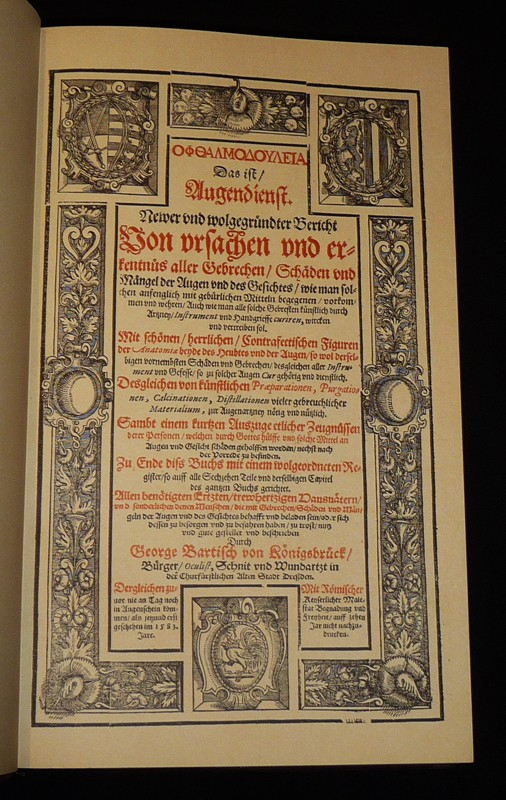 ΟΦΘΑΛΜΟΔΟΥΛΕΙΑ
Das ist/
Augendienst.
Newer vnd wolgegründter Bericht
Von vrsachen vnd er-
kentnüs aller Gebrechen/ Schäden vnd
Mängel der Augen vnd des Gesichtes/ wie man sol-
chen anfenglich mit gebürlichen Mitteln begegenen/ vorkom-
men vnd wehren/ Auch wie man alle solche Gebresten künstlich durch
Artzney/ Instrument vnd Handgrieffe curiren, wircken
vnd vertreiben sol.
Mit schönen/ herrlichen/ Contrafettischen Figuren
der Anatomia beyde des Heubtes vnd der Augen/ so wol dersel-
bigen vornembsten Schäden vnd Gebrechen/ desgleichen aller Instru-
ment vnd Gefesse/ so zu solcher Augen Cur gehörig vnd dienstlich.
Desgleichen von künstlichen Præparationen, Purgatio-
nen, Calcinationen, Distillationen vieler gebreuchlicher
Materialium, zur Augenartzney nötig vnd nützlich.
Sambt einem kurtzen Auszuge etlicher Zeugnüssen
derer Personen/ welchen durch Gottes hülffe vnd solche Mittel an
Augen vnd Gesicht schäden geholffen worden/ nechst nach
der Vorrede zu befinden.
Zu Ende diss Buchs mit einem wolgeordneten Re-
gister/ so auff alle Sechzehen Teile vnd derselbigen Capitel
des gantzen Buchs gerichtet.
Allen benötigten Ertzten/ trewhertzigen Hausvätern/
vnd sonderlichen denen Menschen/ die mit Gebrechen/ Schäden vnd Män-
geln der Augen vnd des Gesichtes behafft vnd beladen sein/ oder sich
dessen zu besorgen vnd zu befahren haben/ zu trost/ nutz
vnd gute gestellet vnd beschrieben
Durch
George Bartisch von Königsbrück/
Bürger/ Oculist, Schnit vnd Wundartzt in
der Churfürstlichen Alten Stadt Dreßden.
Dergleichen zu-
uor nie an Tag noch
in Augenschein kom-
men/ als jetzund erst
geschehen im 1583.
Jare.
Mit Römischer
Keyserlicher Maie-
stat Begnadung vnd
Freyheit/ auff zehen
Jar nicht nachzu-
drucken.